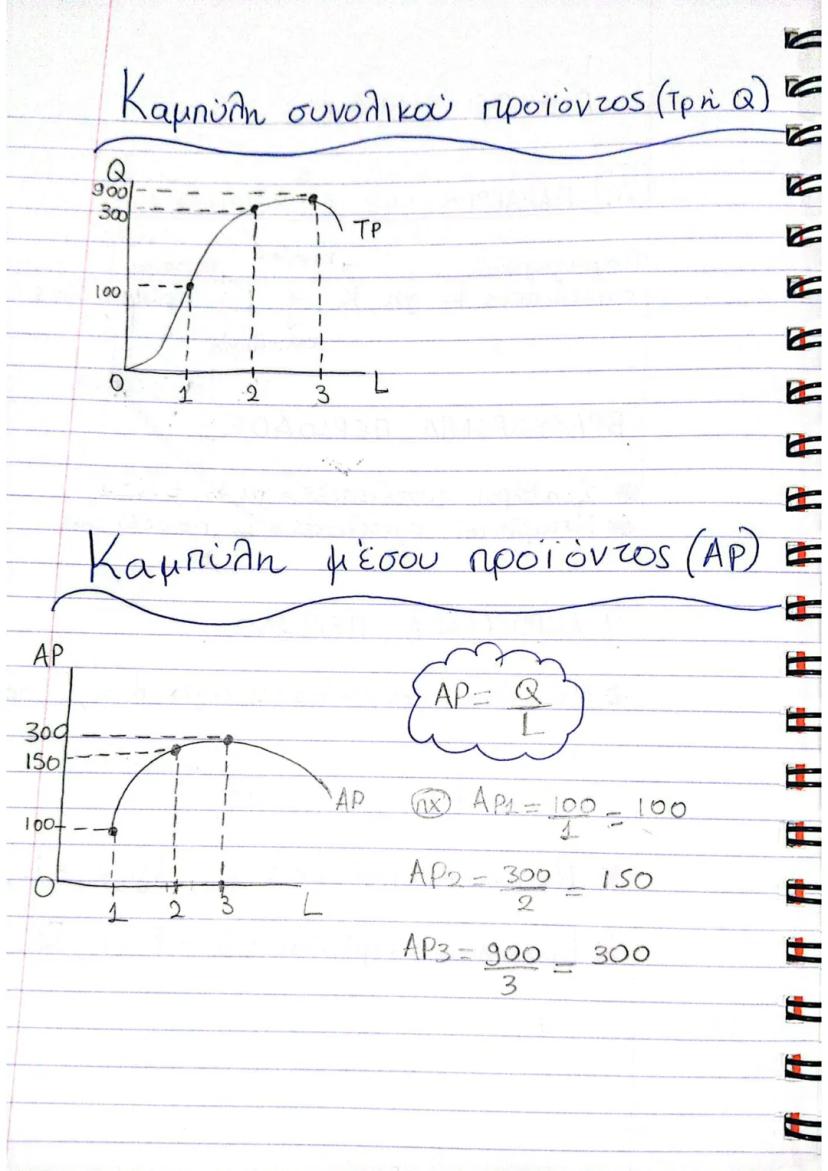 Καμπύλη συνολικού προϊόντος (Tp ή Q)
Q
900
300
TP
100
O
1
2
3
L
Καμπύλη μέσου προϊόντος (AP)
AP
AP = Q/L
300
150
AP
100
O
1
2
3
L
πχ AP1 = 100/1 = 100
AP2 = 300/2 = 150
AP3 = 900/3 = 300